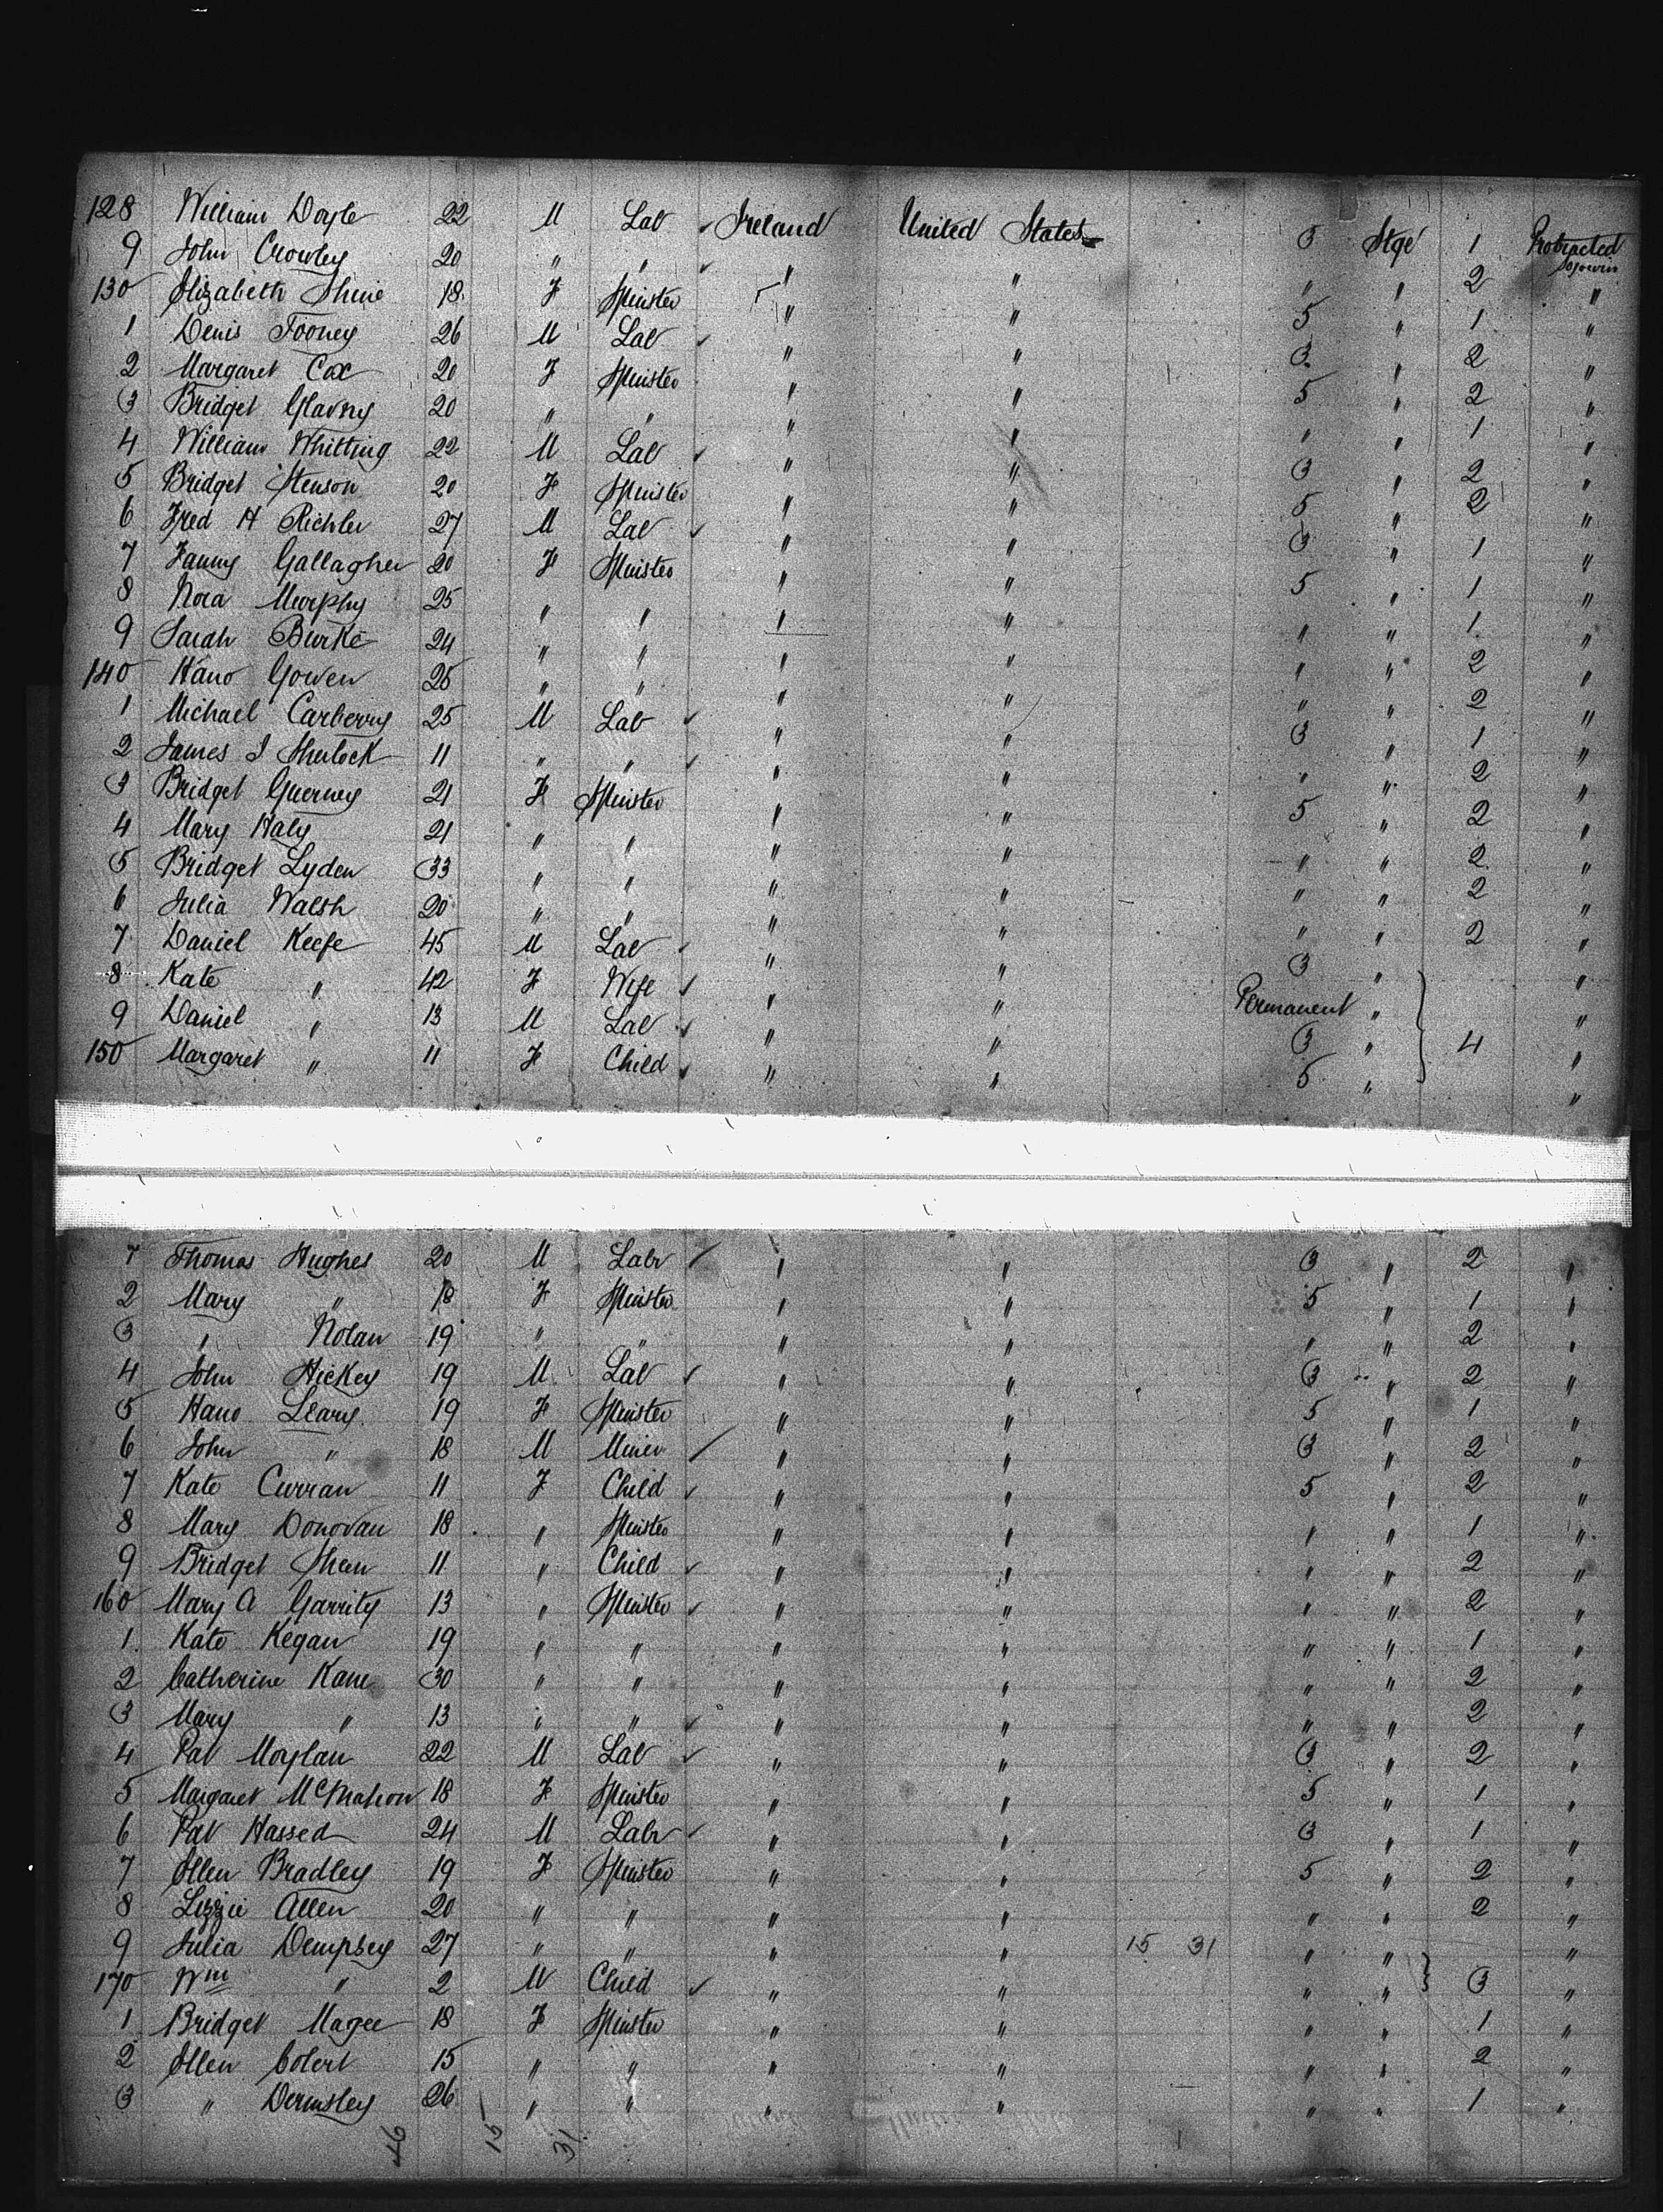 128 William Doyle 22 M Lab ✓ Ireland United States 3 Stge 1 Protracted Sojourn
9 John Crowley 20 " " ✓ " " " " 2 "
130 Elizabeth Shine 18 F Spinster " " 5 " 1 "
1 Denis Tooney 26 M Lab ✓ " " 3 " 2 "
2 Margaret Cox 20 F Spinster " " 5 " 2 "
3 Bridget Glavny 20 " " " " " " 1 "
4 William Whitting 22 M Lab ✓ " " 3 " 2 "
5 Bridget Stenson 20 F Spinster " " 5 " 2 "
6 Fred H Richler 27 M Lab ✓ " " 3 " 1 "
7 Fanny Gallagher 20 F Spinster " " 5 " 1 "
8 Nora Murphy 25 " " " " " " 1 "
9 Sarah Burke 24 " " " " " " 2 "
140 Hano Gowen 25 " " " " " " 2 "
1 Michael Carberry 25 M Lab ✓ " " 3 " 1 "
2 James J Sherlock 11 " " ✓ " " " " 2 "
3 Bridget Guerney 21 F Spinster " " 5 " 2 "
4 Mary Haly 21 " " " " " " 2 "
5 Bridget Lyden 33 " " " " " " 2 "
6 Julia Walsh 20 " " " " " " 2 "
7 Daniel Keefe 45 M Lab ✓ " " 3 " "
8 Kate " 42 F Wife ✓ " " Permanent " "
9 Daniel " 13 M Lab ✓ " " 3 " 4 "
150 Margaret " 11 F Child ✓ " " 5 " "
1 Thomas Hughes 20 M Labr ✓ " " 3 " 2 "
2 Mary " 18 F Spinster " " 5 " 1 "
3 " Nolan 19 " " " " " " 2 "
4 John Hickey 19 M Lab ✓ " " 3 " 2 "
5 Hano Leary 19 F Spinster " " 5 " 1 "
6 John " 18 M Miner ✓ " " 3 " 2 "
7 Kate Curran 11 F Child ✓ " " 5 " 2 "
8 Mary Donovan 18 " Spinster " " " " 1 "
9 Bridget Shew 11 " Child ✓ " " " " 2 "
160 Mary A Garrity 13 " Spinster ✓ " " " " 2 "
1 Kate Kegan 19 " " " " " " 1 "
2 Catherine Kane 30 " " " " " " 2 "
3 Mary " 13 " " ✓ " " " " 2 "
4 Pat Moylan 22 M Lab ✓ " " 3 " 2 "
5 Margaret McMahon 18 F Spinster " " 5 " 1 "
6 Pat Hassed 24 M Labr ✓ " " 3 " 1 "
7 Ellen Bradley 19 F Spinster " " 5 " 2 "
8 Lizzie Allen 20 " " " " " " 2 "
9 Julia Dempsey 27 " " " " 15 31 " " "
170 Wm " 2 M Child ✓ " " " " 3 "
1 Bridget Magee 18 F Spinster " " " " 1 "
2 Ellen Colert 15 " " " " " " 2 "
3 " Dermsley 26 " " " " " " 1 "
46 15 31